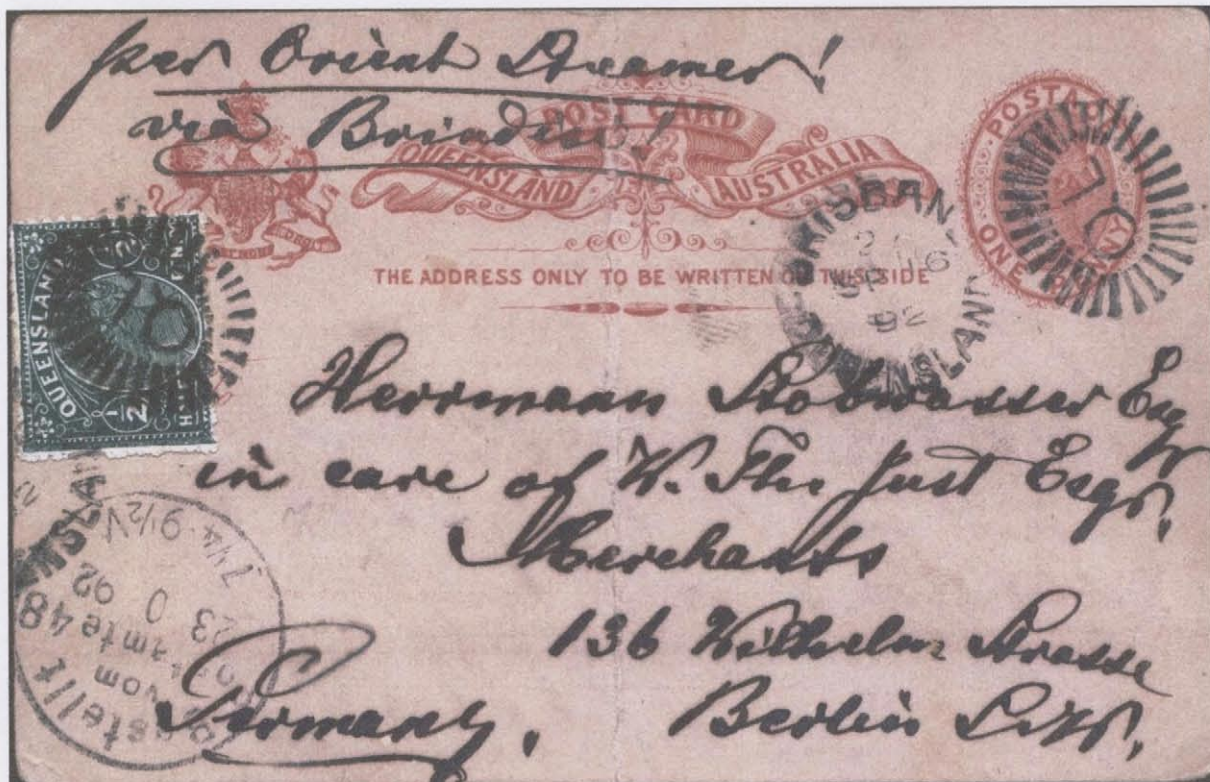 per Orient Steamer!
via Brindisi!
POST CARD
QUEENSLAND AUSTRALIA
THE ADDRESS ONLY TO BE WRITTEN ON THIS SIDE
POSTAGE
ONE PENNY
QUEENSLAND
1/2
BRISBANE
SP 16
92
QUEENSLAND
Herrmann Stobwasser Esq
in care of W. Th. Just Esqr.
Merchants
136 Wilhelm Strasse
Berlin S.W.
Germany.
Bestellt
vom
Postamte 48
23 92
7 1/4 - 9 1/2 V